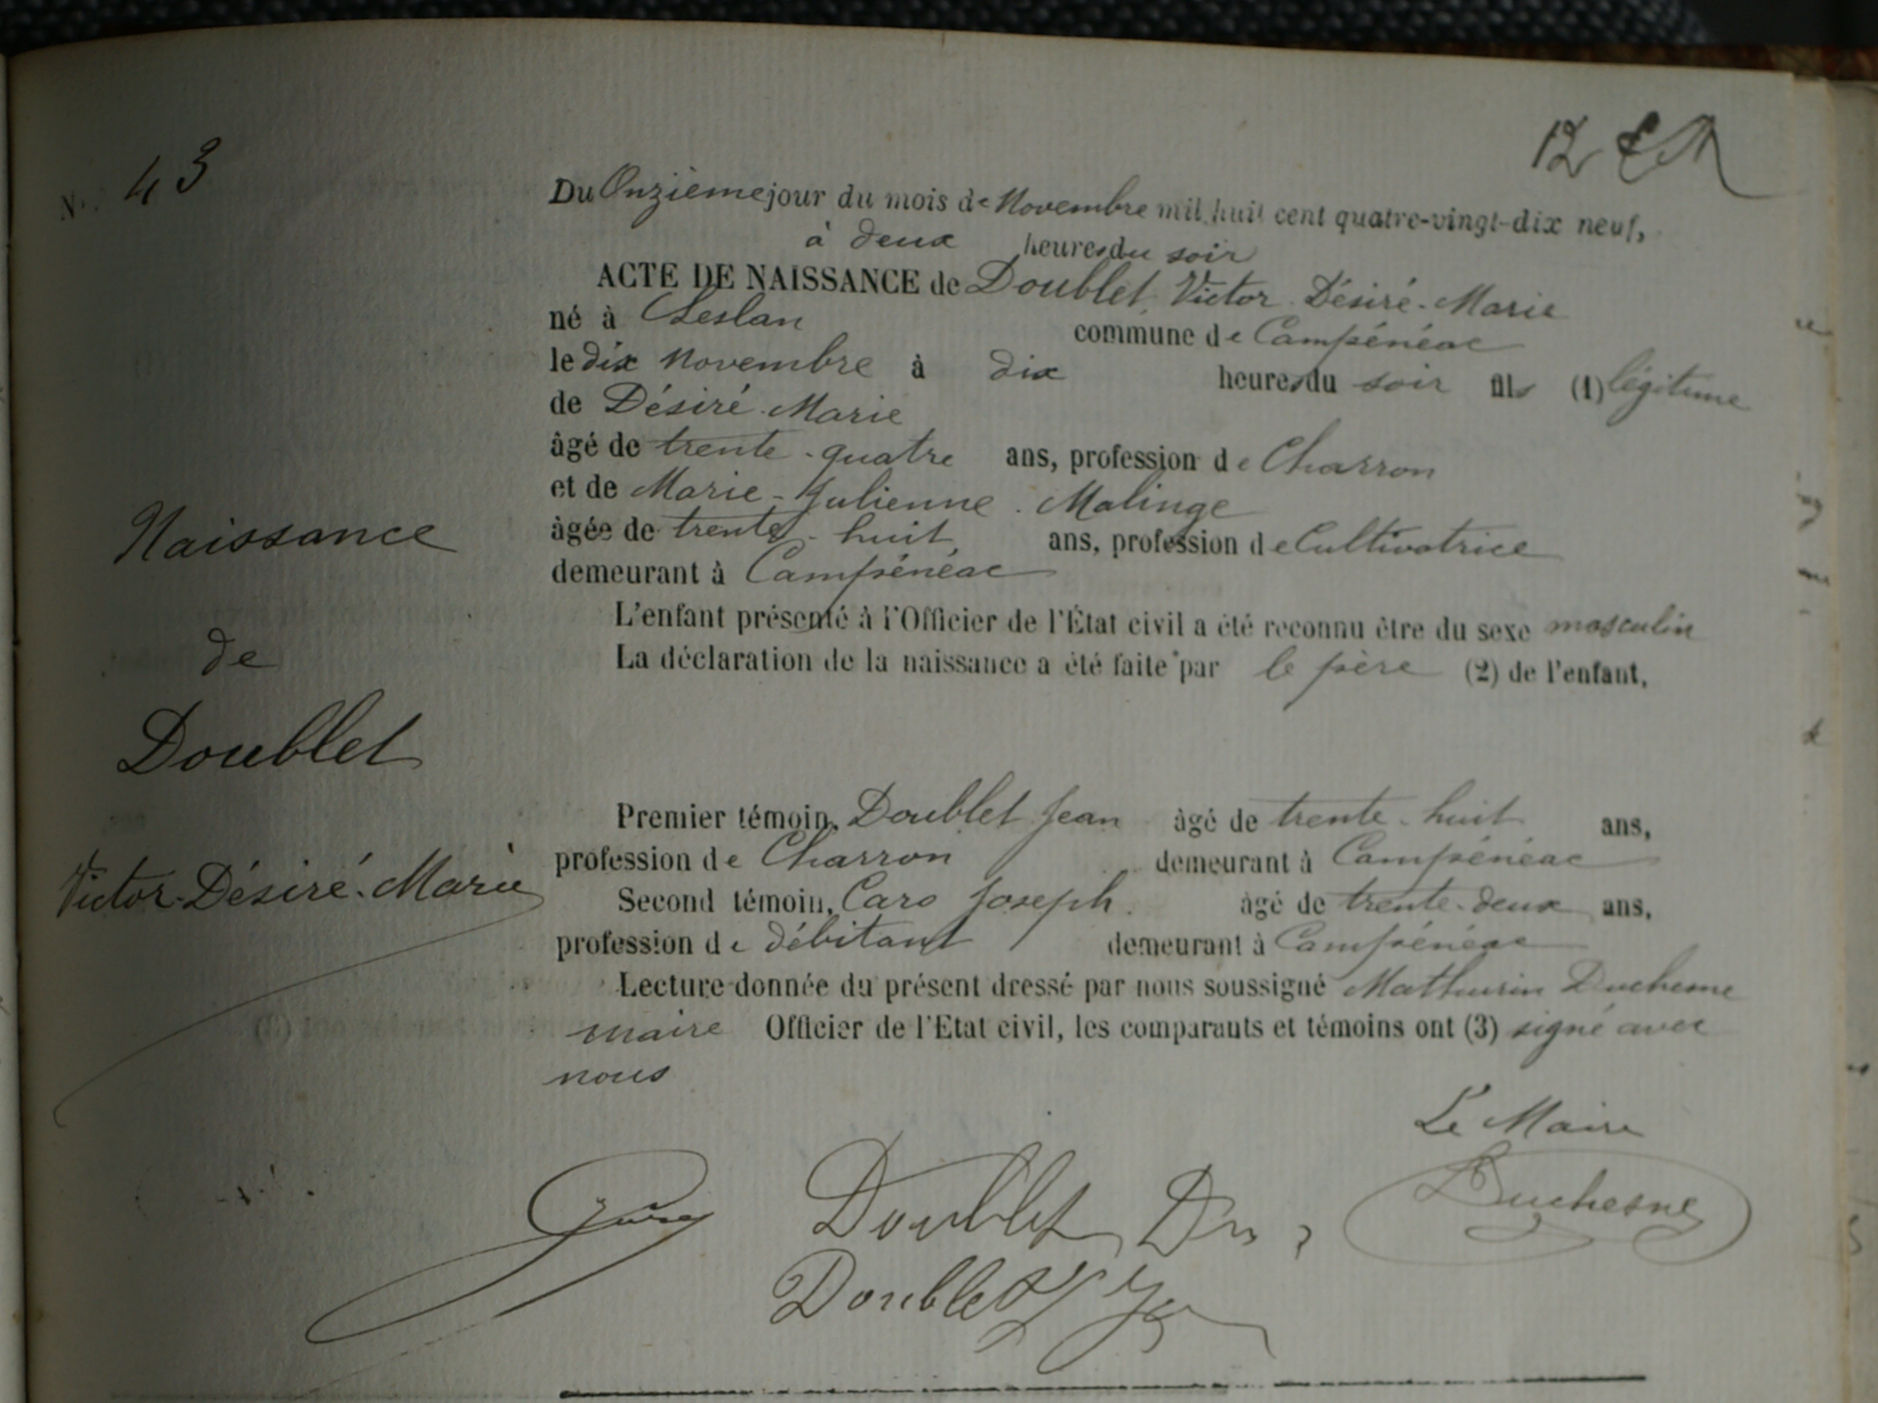 12
N°. 43
Du Onzième jour du mois de Novembre mil huit cent quatre-vingt-dix neuf,
à deux heures du soir
ACTE DE NAISSANCE de Doublet Victor Désiré-Marie
né à Leslan commune de Campénéac
le dix Novembre à dix heures du soir fils (1) légitime
de Désiré Marie
âgé de trente-quatre ans, profession de Charron
et de Marie-Julienne Malinge
âgée de trente-huit ans, profession de Cultivatrice
demeurant à Campénéac
L'enfant présenté à l'Officier de l'État civil a été reconnu être du sexe masculin
La déclaration de la naissance a été faite par le père (2) de l'enfant,
Naissance
de
Doublet
Victor-Désiré-Marie
Premier témoin, Doublet Jean âgé de trente-huit ans,
profession de Charron demeurant à Campénéac
Second témoin, Caro Joseph. âgé de trente-deux ans,
profession de débitant demeurant à Campénéac
Lecture donnée du présent dressé par nous soussigné Mathurin Duchesne
maire Officier de l'Etat civil, les comparants et témoins ont (3) signé avec
nous
Le Maire
Duchesne
Doublet
Doublet